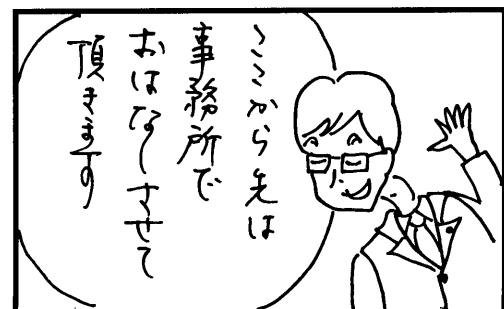 ここから先は
事務所で
おはなしさせて
頂きます